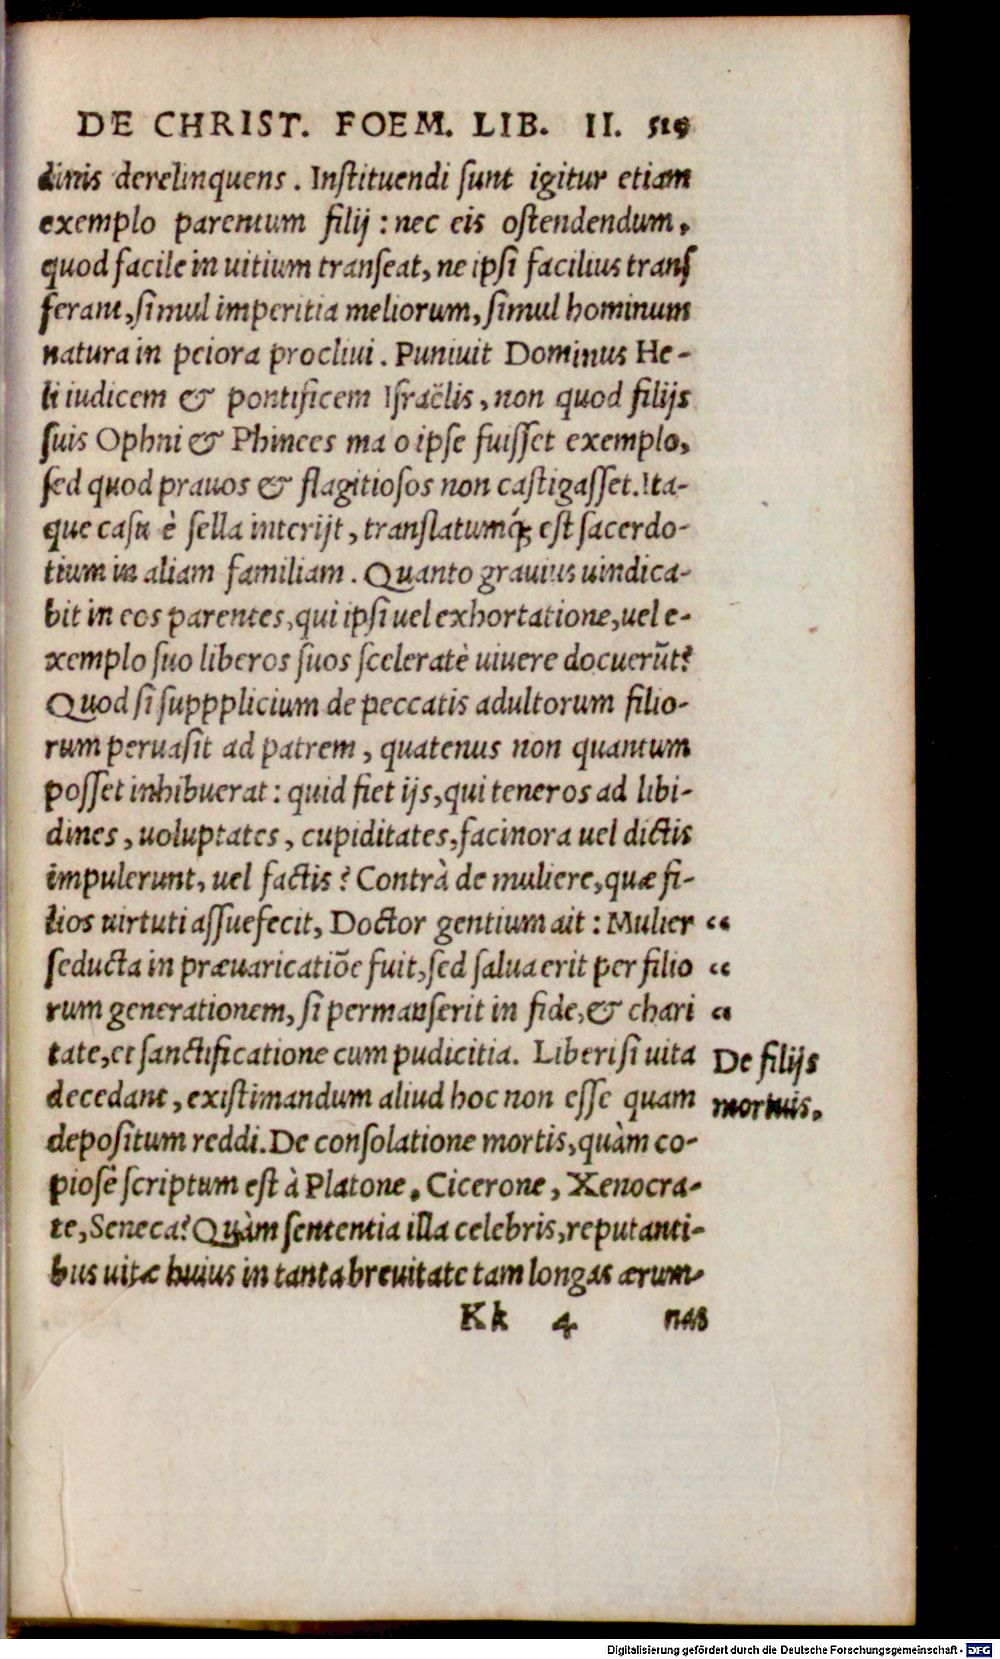 DE CHRIST. FOEM. LIB. II. 519
dinis derelinquens. Instituendi sunt igitur etiam
exemplo parentum filij : nec eis ostendendum,
quod facile in uitium transeat, ne ipsi facilius trans
ferant, simul imperitia meliorum, simul hominum
natura in peiora procliui. Puniuit Dominus He-
li iudicem & pontificem Israëlis, non quod filijs
suis Ophni & Phinees ma o ipse fuisset exemplo,
sed quod prauos & flagitiosos non castigasset. Ita-
que casu è sella interijt, translatumq́; est sacerdo-
tium in aliam familiam. Quanto grauius uindica-
bit in eos parentes, qui ipsi uel exhortatione, uel e-
xemplo suo liberos suos sceleratè uiuere docuerūt?
Quod si suppplicium de peccatis adultorum filio-
rum peruasit ad patrem, quatenus non quantum
posset inhibuerat : quid fiet ijs, qui teneros ad libi-
dines, uoluptates, cupiditates, facinora uel dictis
impulerunt, uel factis? Contrà de muliere, quæ fi-
lios uirtuti assuefecit, Doctor gentium ait : Mulier “
seducta in præuaricatiōe fuit, sed salua erit per filio “
rum generationem, si permanserit in fide, & chari “
tate, et sanctificatione cum pudicitia. Liberi si uita
De filijs
decedant, existimandum aliud hoc non esse quam
mortuis.
depositum reddi. De consolatione mortis, quàm co-
piosè scriptum est à Platone, Cicerone, Xenocra-
te, Seneca? Quàm sententia illa celebris, reputanti-
bus uitæ huius in tanta breuitate tam longas ærum-
Kk 4 nas
Digitalisierung gefördert durch die Deutsche Forschungsgemeinschaft - DFG